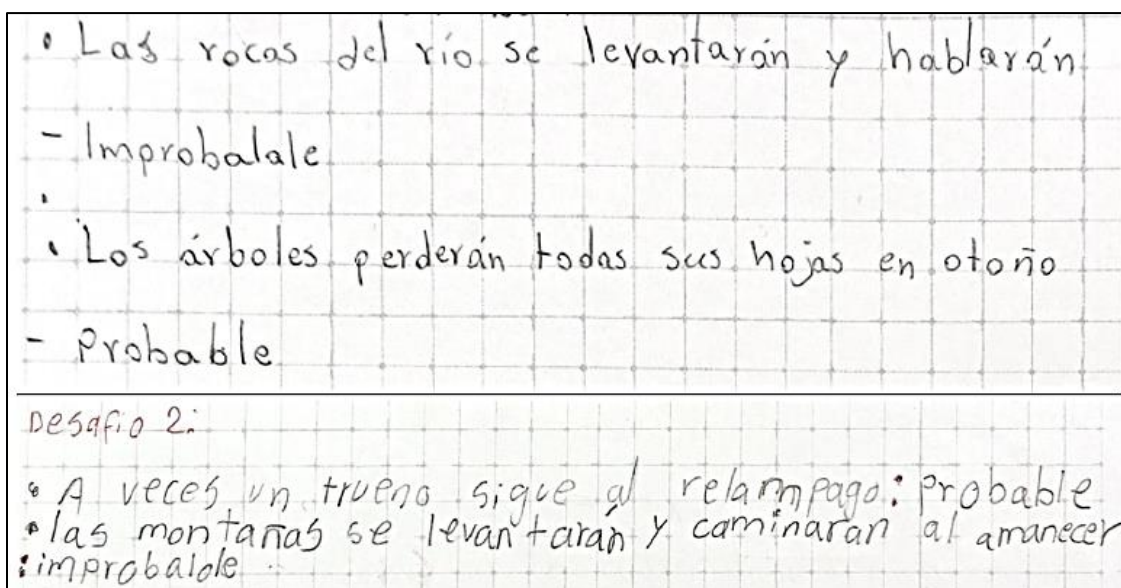 • Las rocas del río se levantarán y hablarán
- Improbalale
• Los árboles perderán todas sus hojas en otoño
- Probable
Desafio 2:
• A veces un trueno sigue al relampago: probable
• las montañas se levantaran y caminaran al amanecer
: improbalole